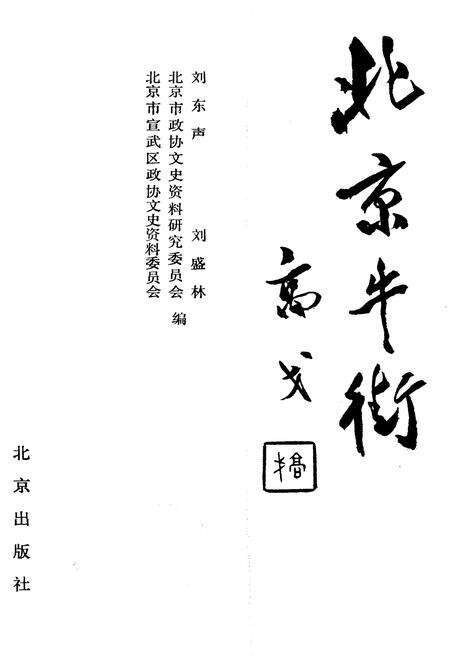 北京牛街
高戈
刘东声 刘盛林
北京市政协文史资料研究委员会 编
北京市宣武区政协文史资料委员会
北京出版社